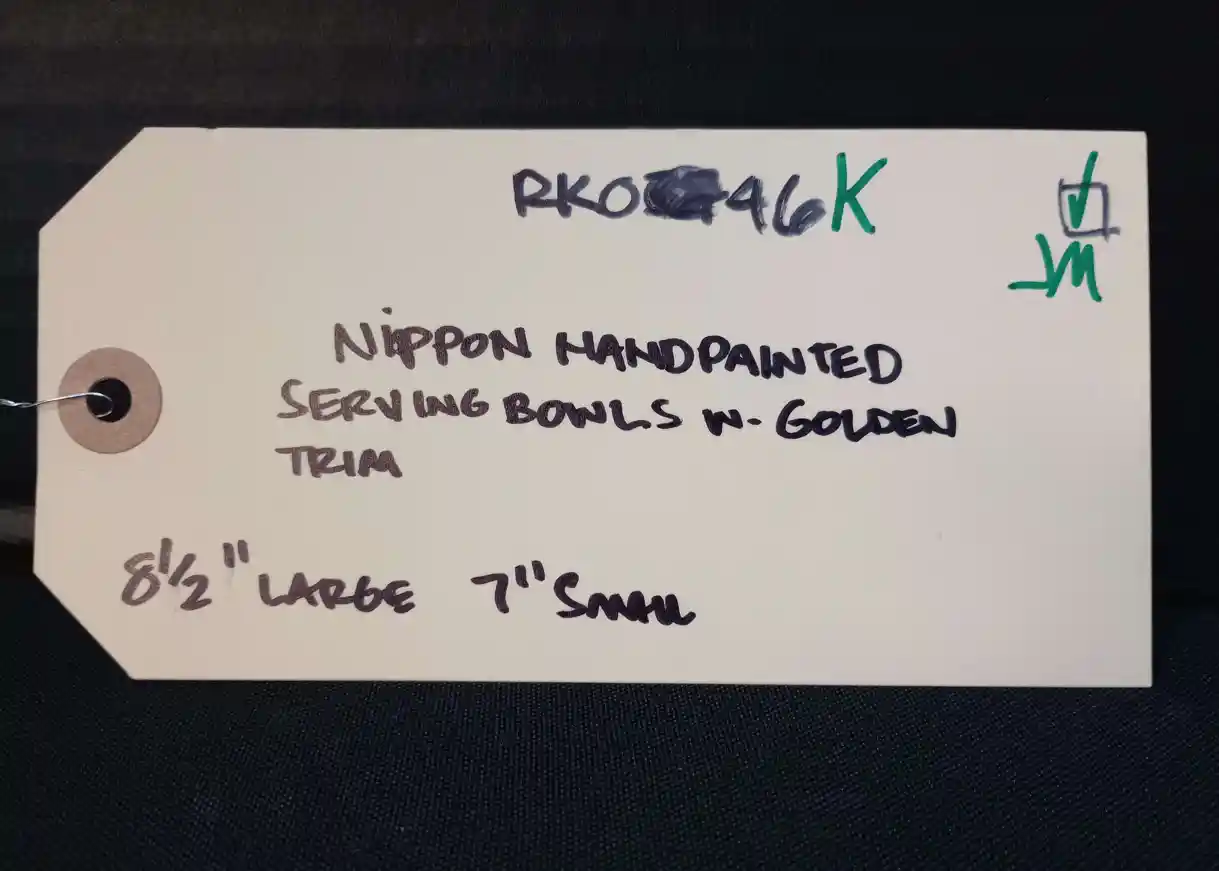 RKO 46K
JM
NIPPON HANDPAINTED
SERVING BOWLS W- GOLDEN
TRIM
8 1/2" LARGE 7" SMALL